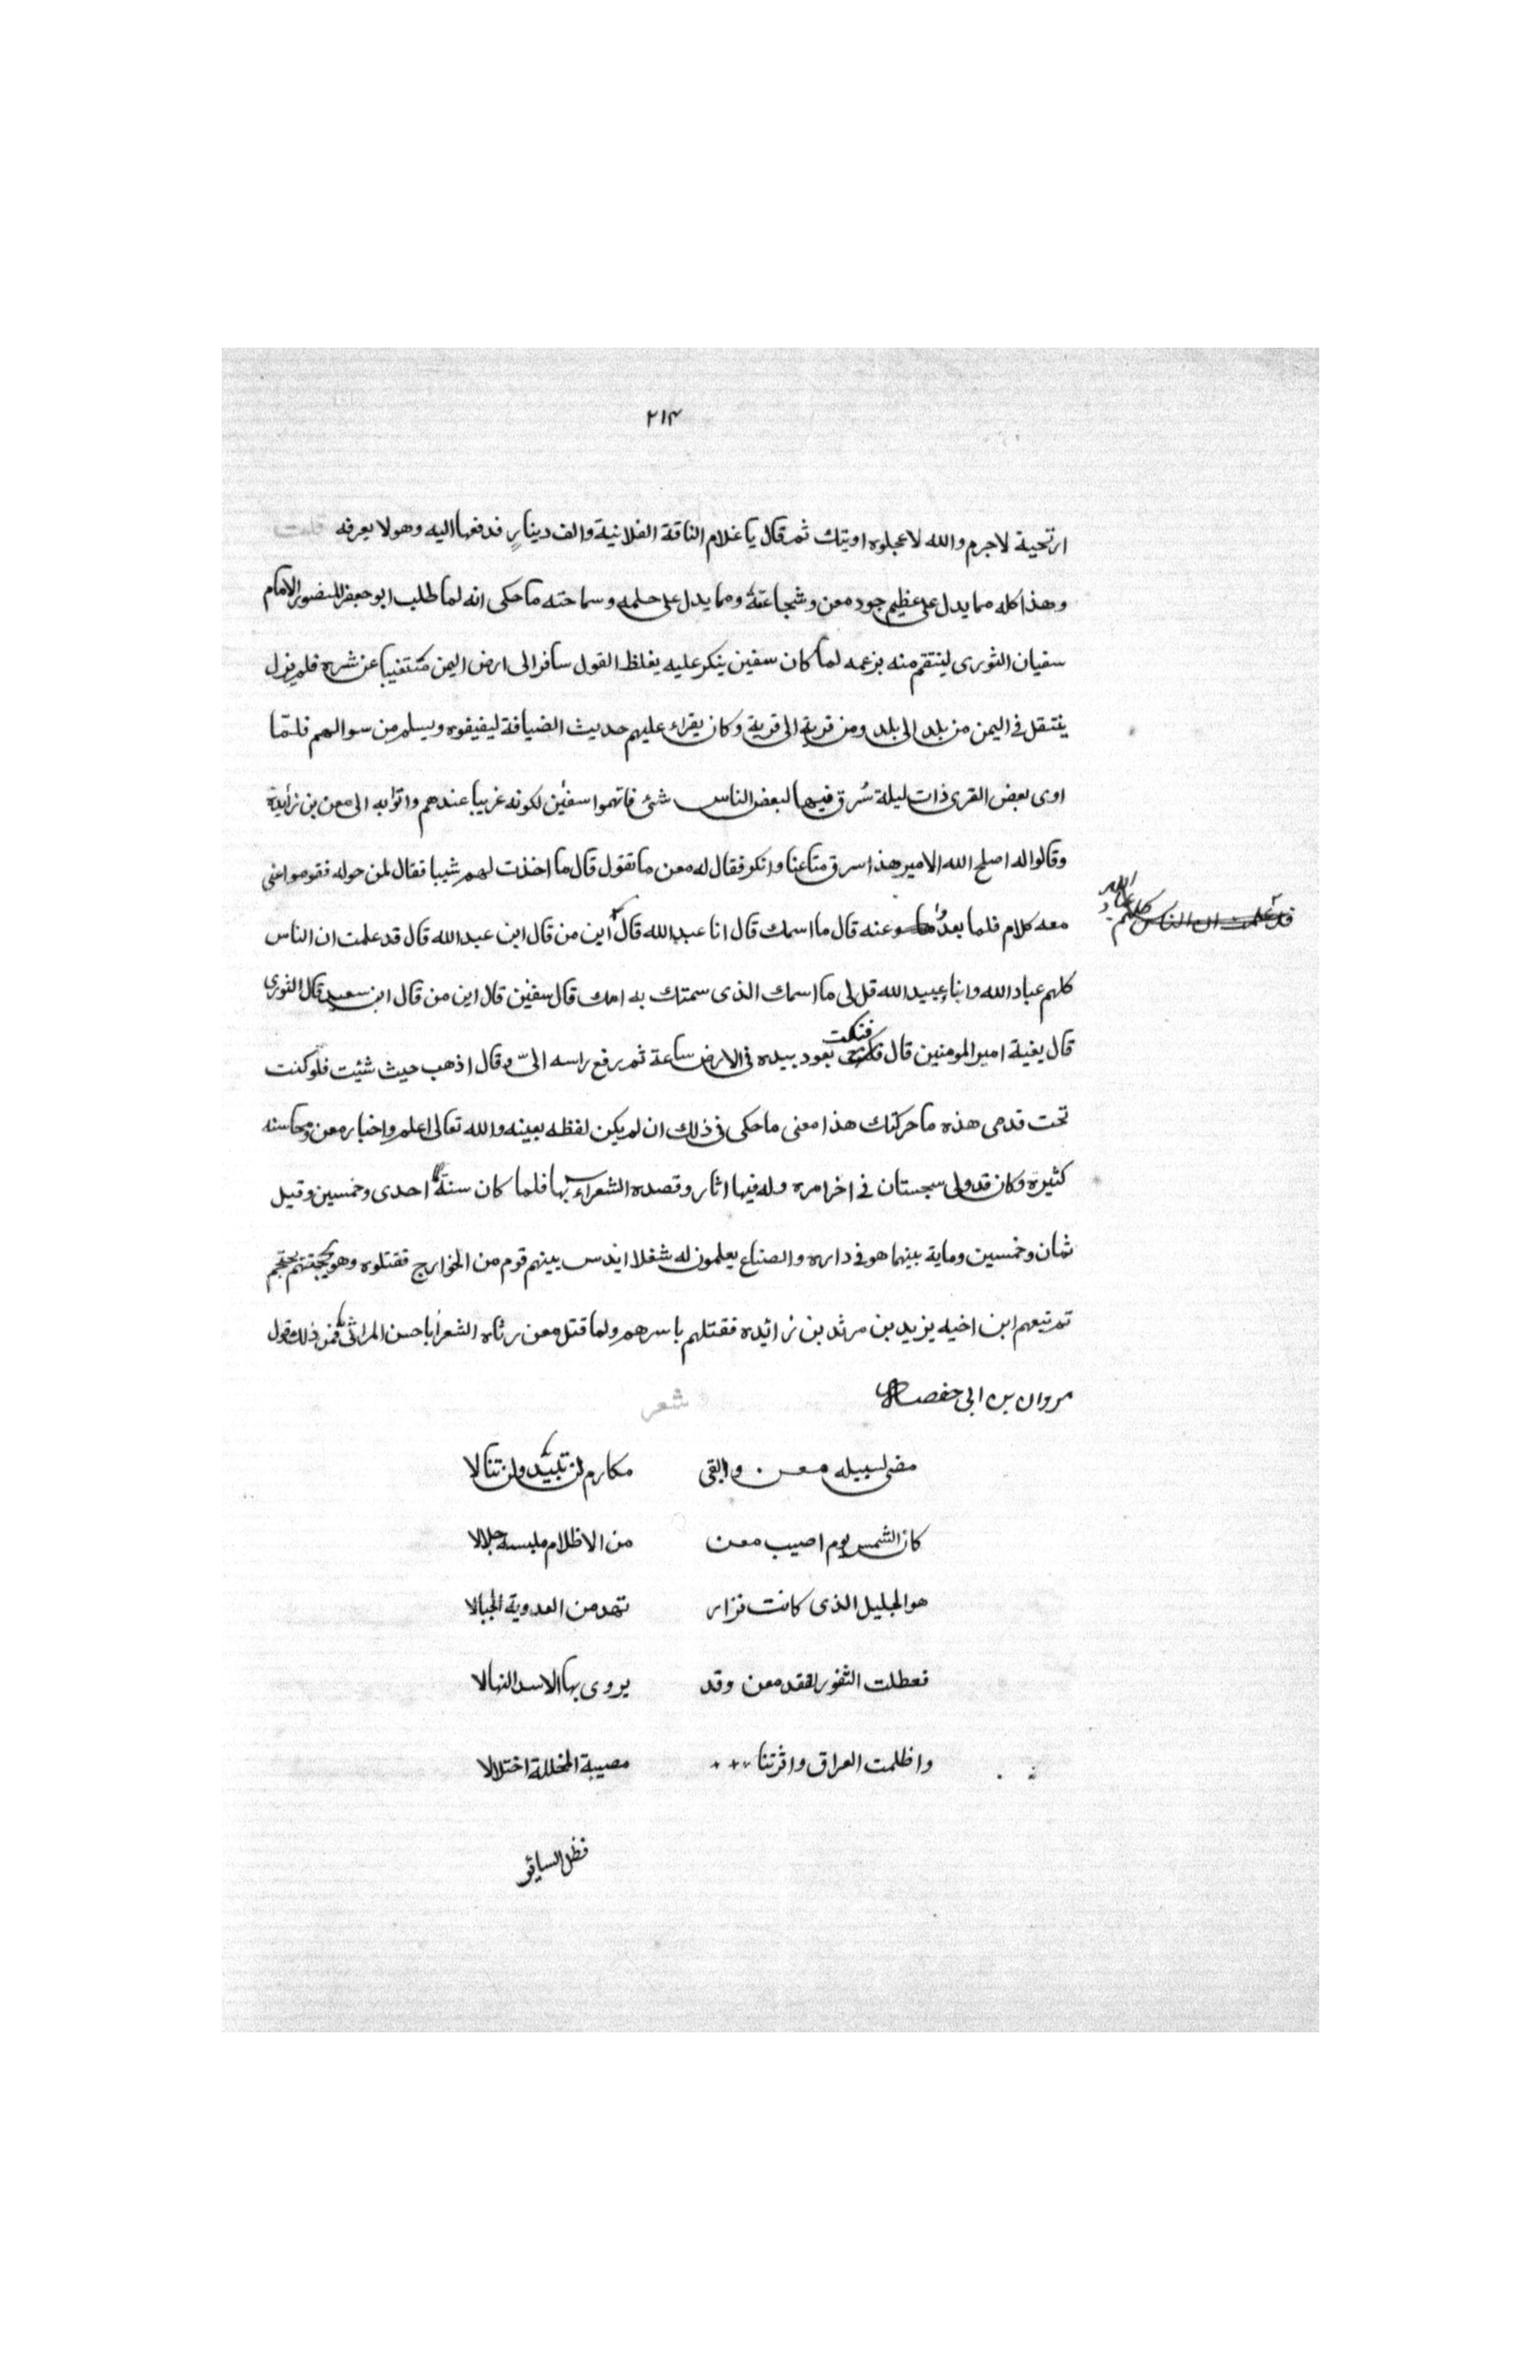 ٢١٤
ارتحية لاجرم والله لاعجلوه اويتك ثم قال يا غلام الناقة الفلانية والف دينارٍ فدفعها اليه وهو لا يعرفه قلت
وهذا كله مما يدل على عظيم جود معن وشجاعته ومما يدل على حلمه وسماحته ما حكى انه لما طلب ابو جعفر المنصور الامام
سفيان الثورى لينتقم منه بزعمه لما كان سفين ينكر عليه يغلظ القول سافر الى ارض اليمن عن شره فلم يزل
ينتقل فى اليمن من بلد الى بلد ومن قرية الى قرية وكان يقراء عليهم حديث الضيافة ليضيفوه ويسلم من سوالهم فلتما
اوى بعض القرى ذات ليلة سُرق فيها لبعض الناس شئ فاتهموا سفين لكونه غريبا عندهم واتوا به الى معن بن زايدة
وقالوا له اصلح الله الامير هذا سرق متاعنا وانكر فقال له معن ما تقول قال ما اخذت لهم شيبا فقال لمن حوله فقوموا عنى
معه كلام فلما بعدوا عنه قال ما اسمك قال انا عبد الله قال اين من قال ابن عبد الله قال قد علمت ان الناس
قد علمت ان الناس كلهم عباد الله
كلهم عباد الله وابناء عبيد الله قل لى ما اسمك الذى سمتك به امك قال سفين قال ابن من قال ابن سعيد قال الثورى
قال بغية امير المومنين قال فنكت بعود بيده فى الارض ساعة ثم رفع راسه الىّ وقال اذهب حيث شئيت فلو كنت
تحت قدمى هذه ما حركتك هذا معنى ما حكى فى ذلك ان لم يكن لفظه بعينه والله تعالى اعلم واخبار معن ومحاسنه
كثيرة وكان قد ولى سجستان فى اخر امره وله فيها اثار وقصده الشعراء بها فلما كان سنة احدى وخمسين وقيل
ثمان وخمسين وماية بينما هو فى داره والصناع يعلمون له شغلا اندس بينهم قوم من الخوارج فقتلوه وهو يحتجم
ثم تبعهم ابن اخيه يزيد بن مرثد بن زائيده فقتلهم باسرهم ولما قتل معن رثاه الشعرا باحسن المراثى فمن ذلك قول
مروان بن ابى حفصه شعر
مضى لسبيله معن وابقى مكارم لن تبيد ولن تنالا
كان الشمس يوم اصيب معن من الاظلام ملبسه جلالا
هو الجليل الذى كانت نزار تهد من العدوية الجبالا
فعطلت الثغور لفقد معن وقد يروى بها الاسد النهالا
واظلمت العراق واثرتنا مصيبة المخللة اختلالا
فظل السائر